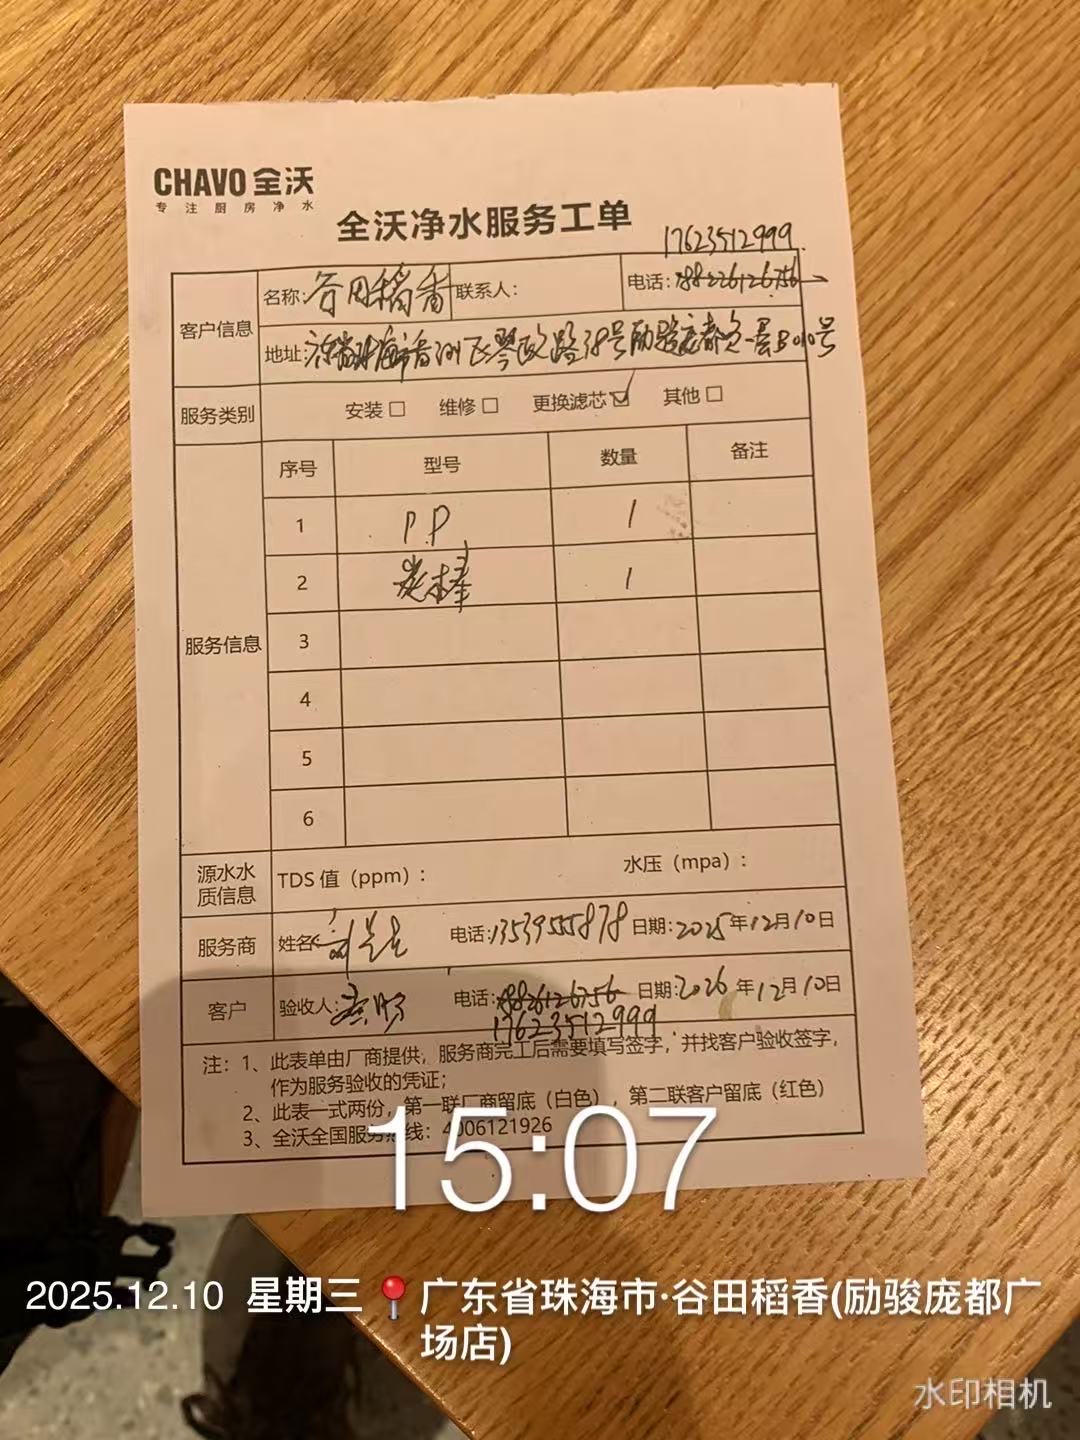 CHAVO 全沃
专注厨房净水
全沃净水服务工单
17623512999
客户信息
名称：谷田稻香 联系人： 电话：
地址：广东省珠海市香洲区琴政路38号励骏庞都负一层B010号
服务类别 安装□ 维修□ 更换滤芯☑ 其他□
服务信息
序号 型号 数量 备注
1 P.P 1
2 炭棒 1
3
4
5
6
源水水质信息 TDS 值（ppm）： 水压（mpa）：
服务商 姓名： 电话：13539555878 日期：2025年12月10日
客户 验收人： 电话：18826126756 日期：2026年12月10日
17623512999
注：1、此表单由厂商提供，服务商完工后需要填写签字，并找客户验收签字，
作为服务验收的凭证；
2、此表一式两份，第一联厂商留底（白色），第二联客户留底（红色）
3、全沃全国服务热线：4006121926
15:07
2025.12.10 星期三 广东省珠海市·谷田稻香(励骏庞都广
场店)
水印相机